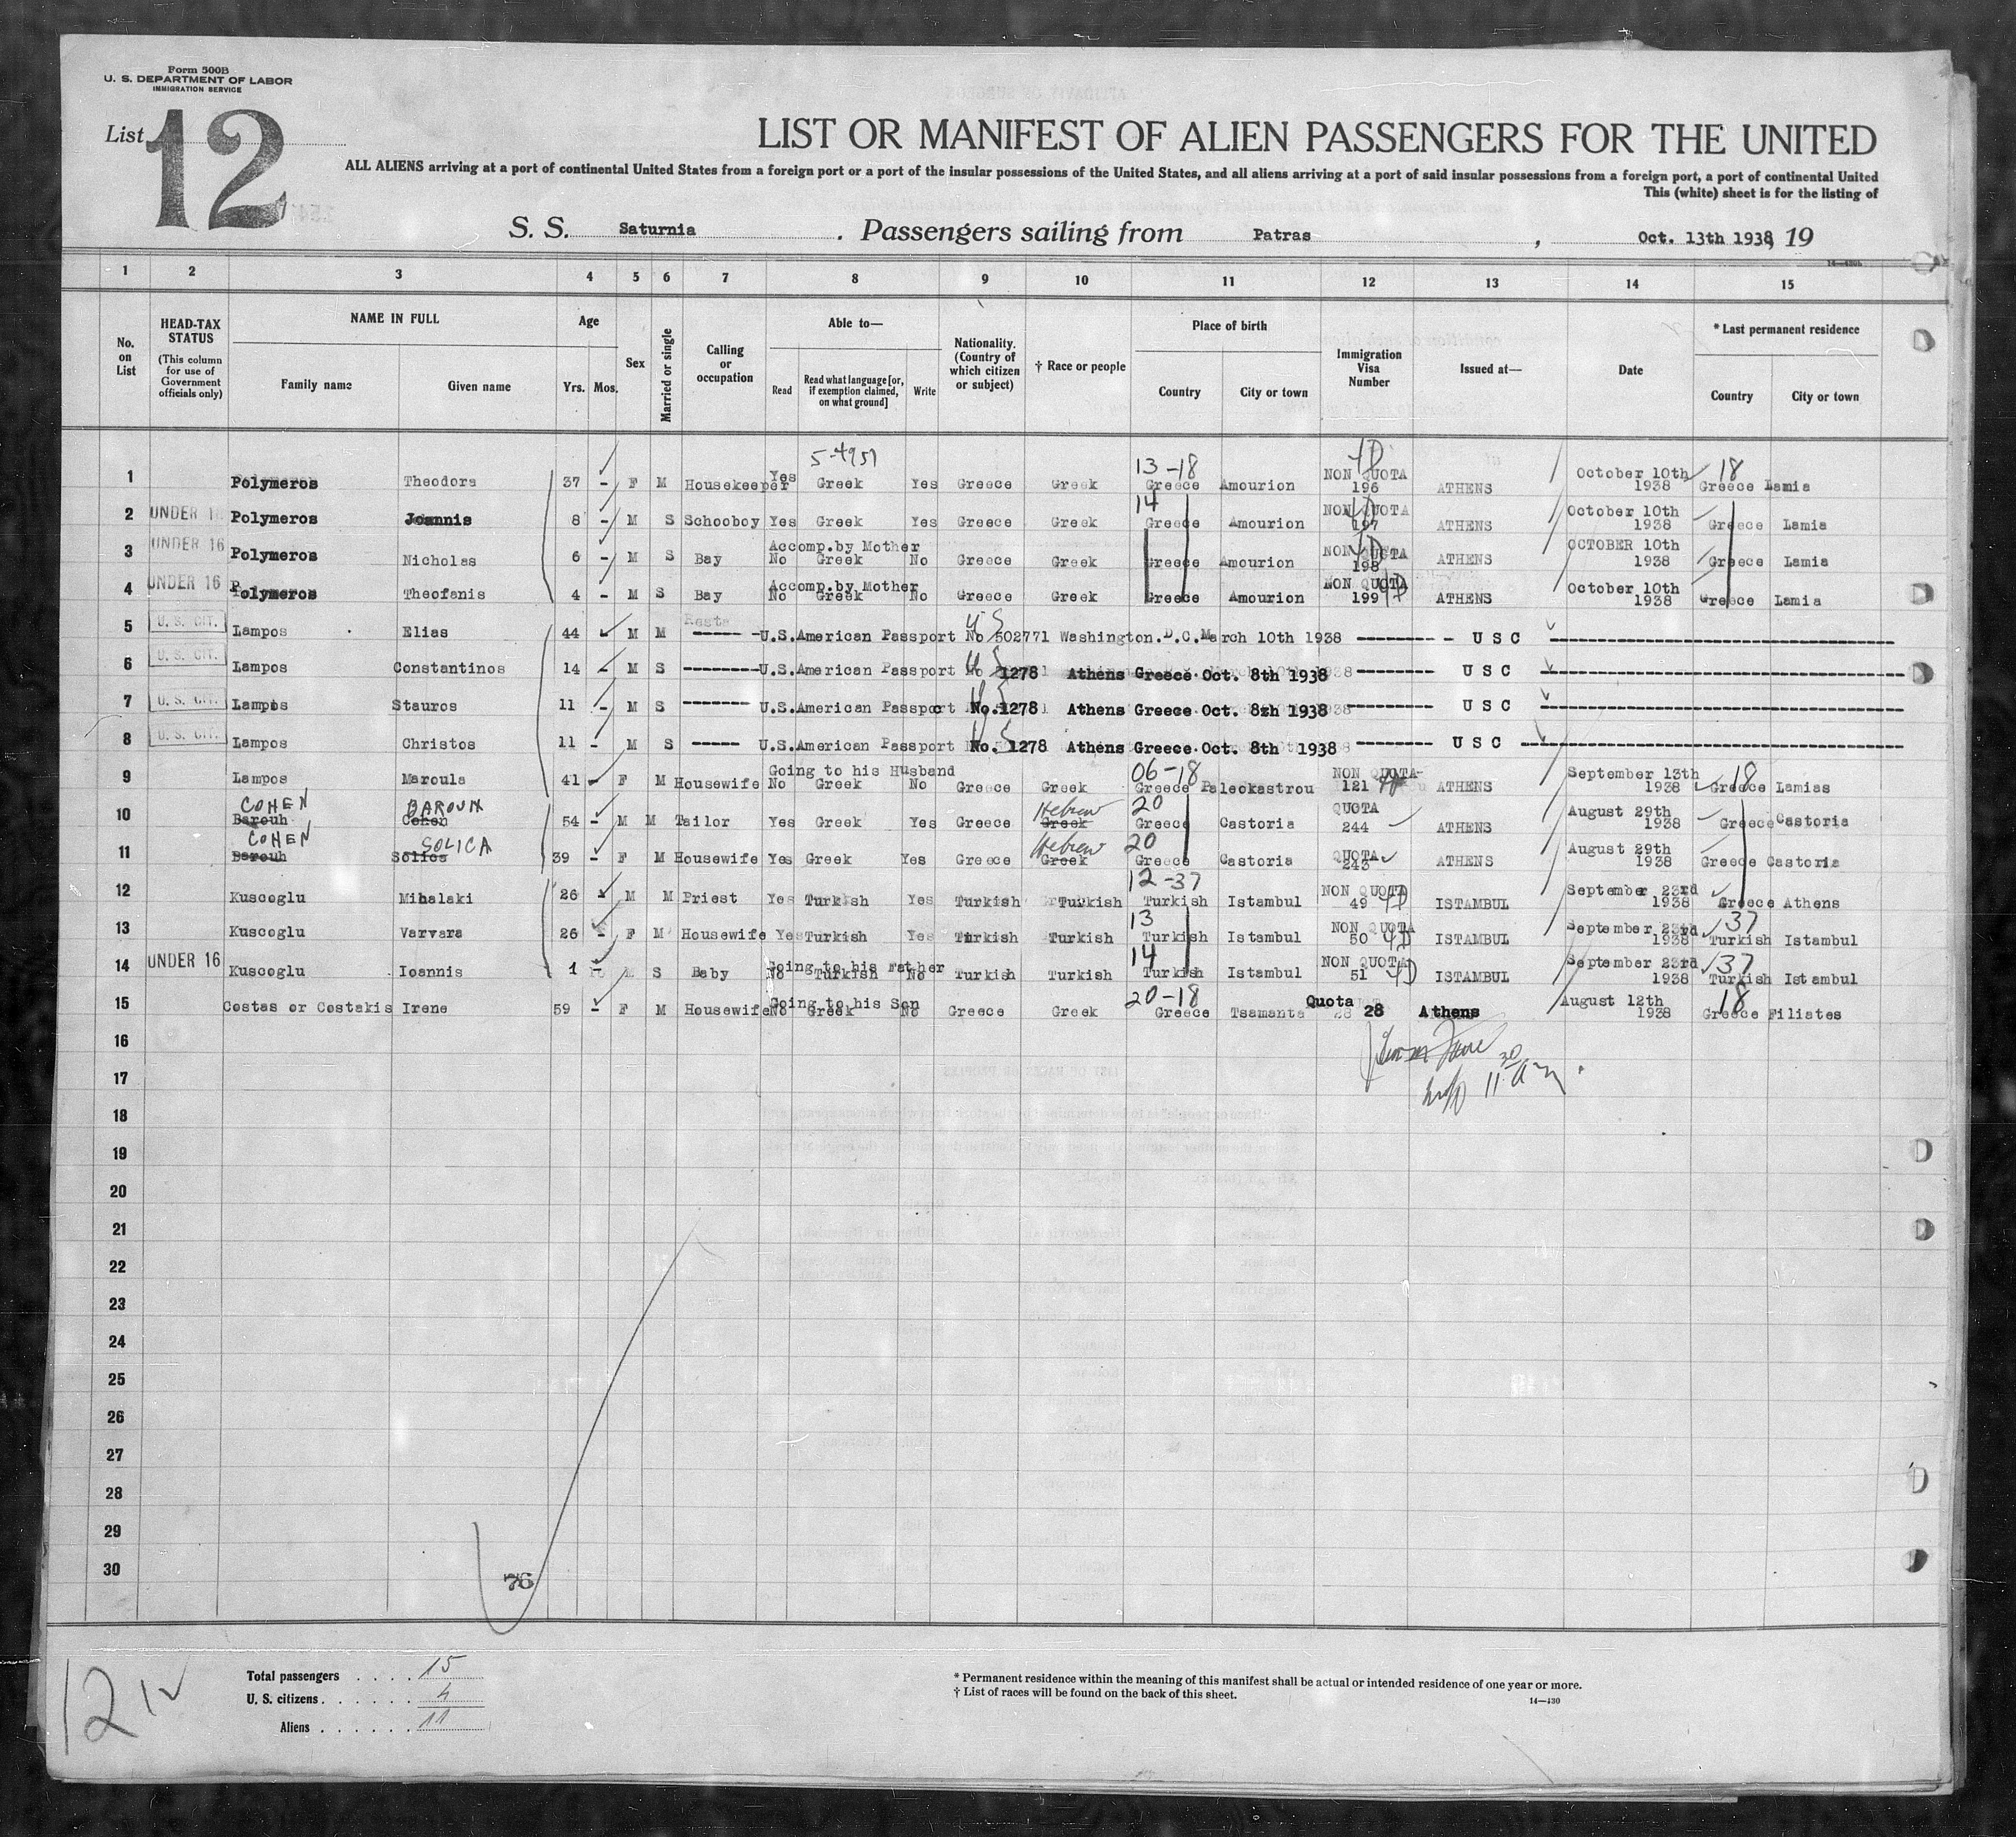 Form 500B
U. S. DEPARTMENT OF LABOR
IMMIGRATION SERVICE
List 12
LIST OR MANIFEST OF ALIEN PASSENGERS FOR THE UNITED
ALL ALIENS arriving at a port of continental United States from a foreign port or a port of the insular possessions of the United States, and all aliens arriving at a port of said insular possessions from a foreign port, a port of continental United
This (white) sheet is for the listing of
S. S. Saturnia . Passengers sailing from Patras , Oct. 13th 1938, 19
14—430b
1 2 3 4 5 6 7 8 9 10 11 12 13 14 15
No. on List
HEAD-TAX STATUS (This column for use of Government officials only)
NAME IN FULL
Family name Given name
Age
Yrs. Mos.
Sex
Married or single
Calling or occupation
Able to—
Read Read what language [or, if exemption claimed, on what ground] Write
Nationality. (Country of which citizen or subject)
† Race or people
Place of birth
Country City or town
Immigration Visa Number
Issued at—
Date
* Last permanent residence
Country City or town
5-4951 13-18 18
1 Polymeros Theodora 37 - F M Housekeeper Yes Greek Yes Greece Greek Greece Amourion NON QUOTA 196 ATHENS October 10th 1938 Greece Lamia
14
2 UNDER 1 Polymeros Joannis 8 - M S Schooboy Yes Greek Yes Greece Greek Greece Amourion NON QUOTA 197 ATHENS October 10th 1938 Greece Lamia
3 UNDER 16 Polymeros Nicholas 6 - M S Bay Accomp.by Mother No Greek No Greece Greek Greece Amourion NON QUOTA 198 ATHENS OCTOBER 10th 1938 Greece Lamia
4 UNDER 16 Polymeros Theofanis 4 - M S Bay Accomp.by Mother No Greek No Greece Greek Greece Amourion NON QUOTA 199 ATHENS October 10th 1938 Greece Lamia
5 U. S. CIT. Lampos Elias 44 - M M U.S.American Passport No 502771 Washington.D.C.March 10th 1938 - U S C
6 U. S. CIT. Lampos Constantinos 14 - M S U.S.American Passport No 1278 Athens Greece Oct. 8th 1938 U S C
7 U. S. CIT. Lampos Stauros 11 - M S U.S.American Passport No.1278 Athens Greece Oct. 8zh 1938 U S C
8 U. S. CIT. Lampos Christos 11 - M S U.S.American Passport No. 1278 Athens Greece.Oct. 8th 1938 U S C
06-18 18
9 Lampos Maroula 41 - F M Housewife Going to his Husband No Greek No Greece Greek Greece Paleokastrou NON QUOTA 121 ATHENS September 13th 1938 Greece Lamias
COHEN BAROUH Hebrew 20
10 Barouh Cohen 54 - M M Tailor Yes Greek Yes Greece Greek Greece Castoria QUOTA 244 ATHENS August 29th 1938 Greece Castoria
COHEN SOLICA Hebrew 20
11 Barouh Solica 39 - F M Housewife Yes Greek Yes Greece Greek Greece Castoria QUOTA 243 ATHENS August 29th 1938 Greece Castoria
12-37
12 Kuscoglu Mihalaki 26 - M M Priest Yes Turkish Yes Turkish Turkish Turkish Istambul NON QUOTA 49 ISTAMBUL September 23rd 1938 Greece Athens
13 37
13 Kuscoglu Varvara 26 - F M Housewife Yes Turkish Yes Turkish Turkish Turkish Istambul NON QUOTA 50 ISTAMBUL September 23rd 1938 Turkish Istambul
14 37
14 UNDER 16 Kuscoglu Ioannis 1 - S Baby Going to his Father No Turkish No Turkish Turkish Turkish Istambul NON QUOTA 51 ISTAMBUL September 23rd 1938 Turkish Istambul
20-18 18
15 Costas or Costakis Irene 59 - F M Housewife Going to his Son No Greek No Greece Greek Greece Tsamanta Quota 28 Athens August 12th 1938 Greece Filiates
16
17
18
19
20
21
22
23
24
25
26
27
28
29
30
76
12
Total passengers . . . . 15
U. S. citizens . . . . . . 4
Aliens . . . . . . 11
* Permanent residence within the meaning of this manifest shall be actual or intended residence of one year or more.
† List of races will be found on the back of this sheet.
14—430